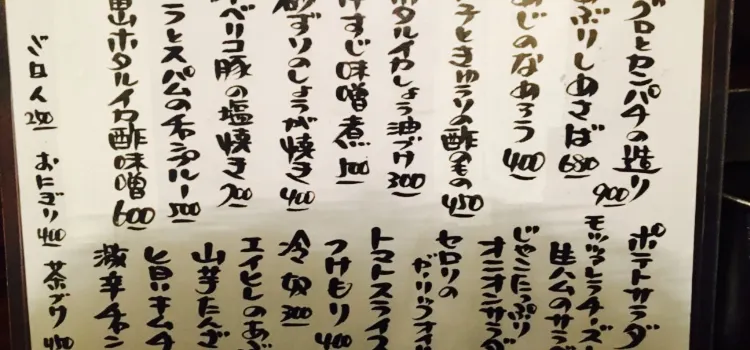 グロとカンパチの造り 900
ぶりしめさば 680
あじのなめろう 400
子ときゅうりの酢のもの 450
タルイカしょう油づけ 300
すじ味噌煮 500
ずりのしょうが焼き 400
ベリコ豚の塩焼き 700
ラとスパムのチャンプルー 500
山ホタルイカ酢味噌 600
ポテトサラダ
モッツァレラチーズと
生ハムのサラダ
じゃこたっぷり
オニオンサラダ
セロリの
ガーリックオイ
トマトスライス
つけもり 400
冷奴 300
エイヒレのあぶ
山芋たんざ
旨いキムチ
激辛チャン
ごはん 200
おにぎり 400
茶づけ 450